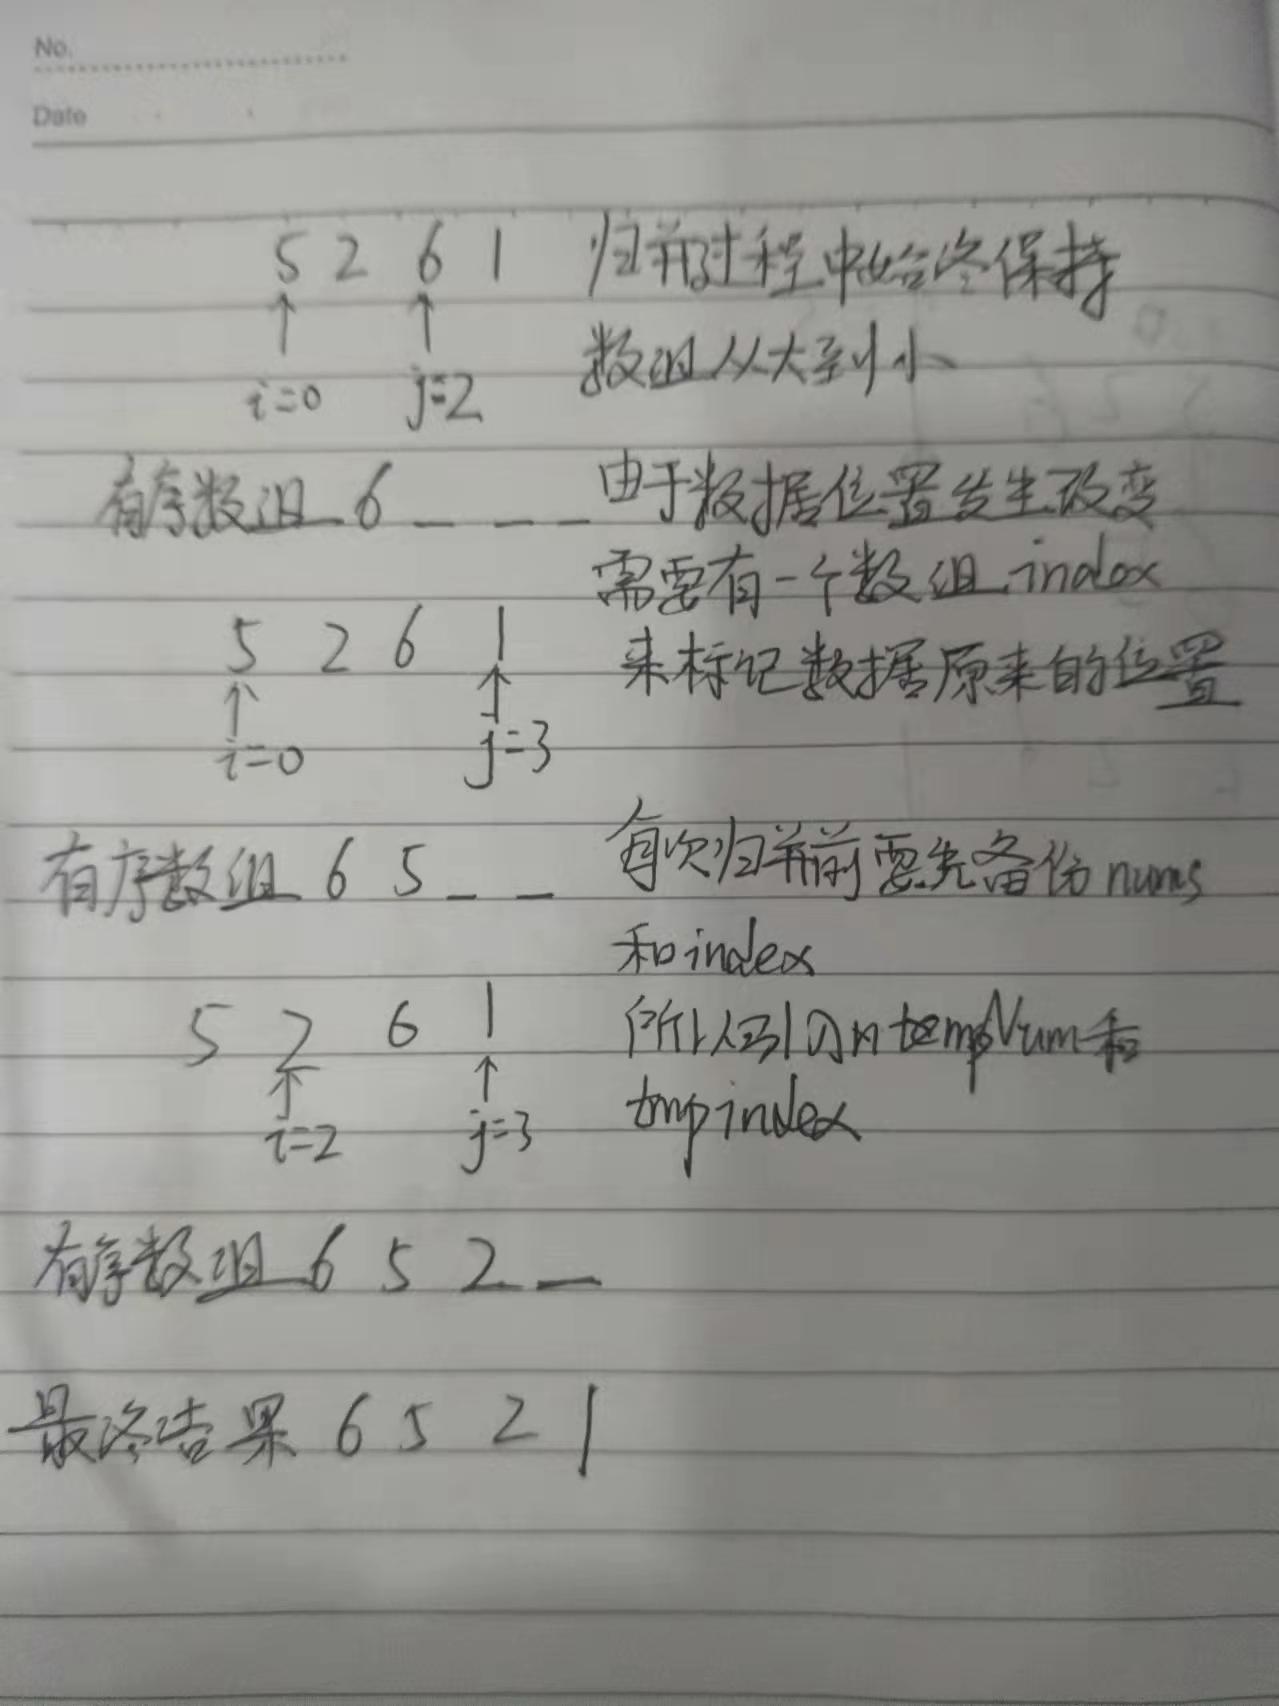 No.
Date
5 2 6 1 归并过程中始终保持
↑ ↑
i=0 j=2 数组从大到小
有序数组 6 _ _ _ 由于数据位置发生改变
需要有一个数组 index
5 2 6 1 来标记数据原来的位置
↑ ↑
i=0 j=3
有序数组 6 5 _ _ 每次归并前要先备份 nums
和 index
5 2 6 1 所以引入 tempNum 和
↑ ↑
i=2 j=3 tmpindex
有序数组 6 5 2 _
最终结果 6 5 2 1